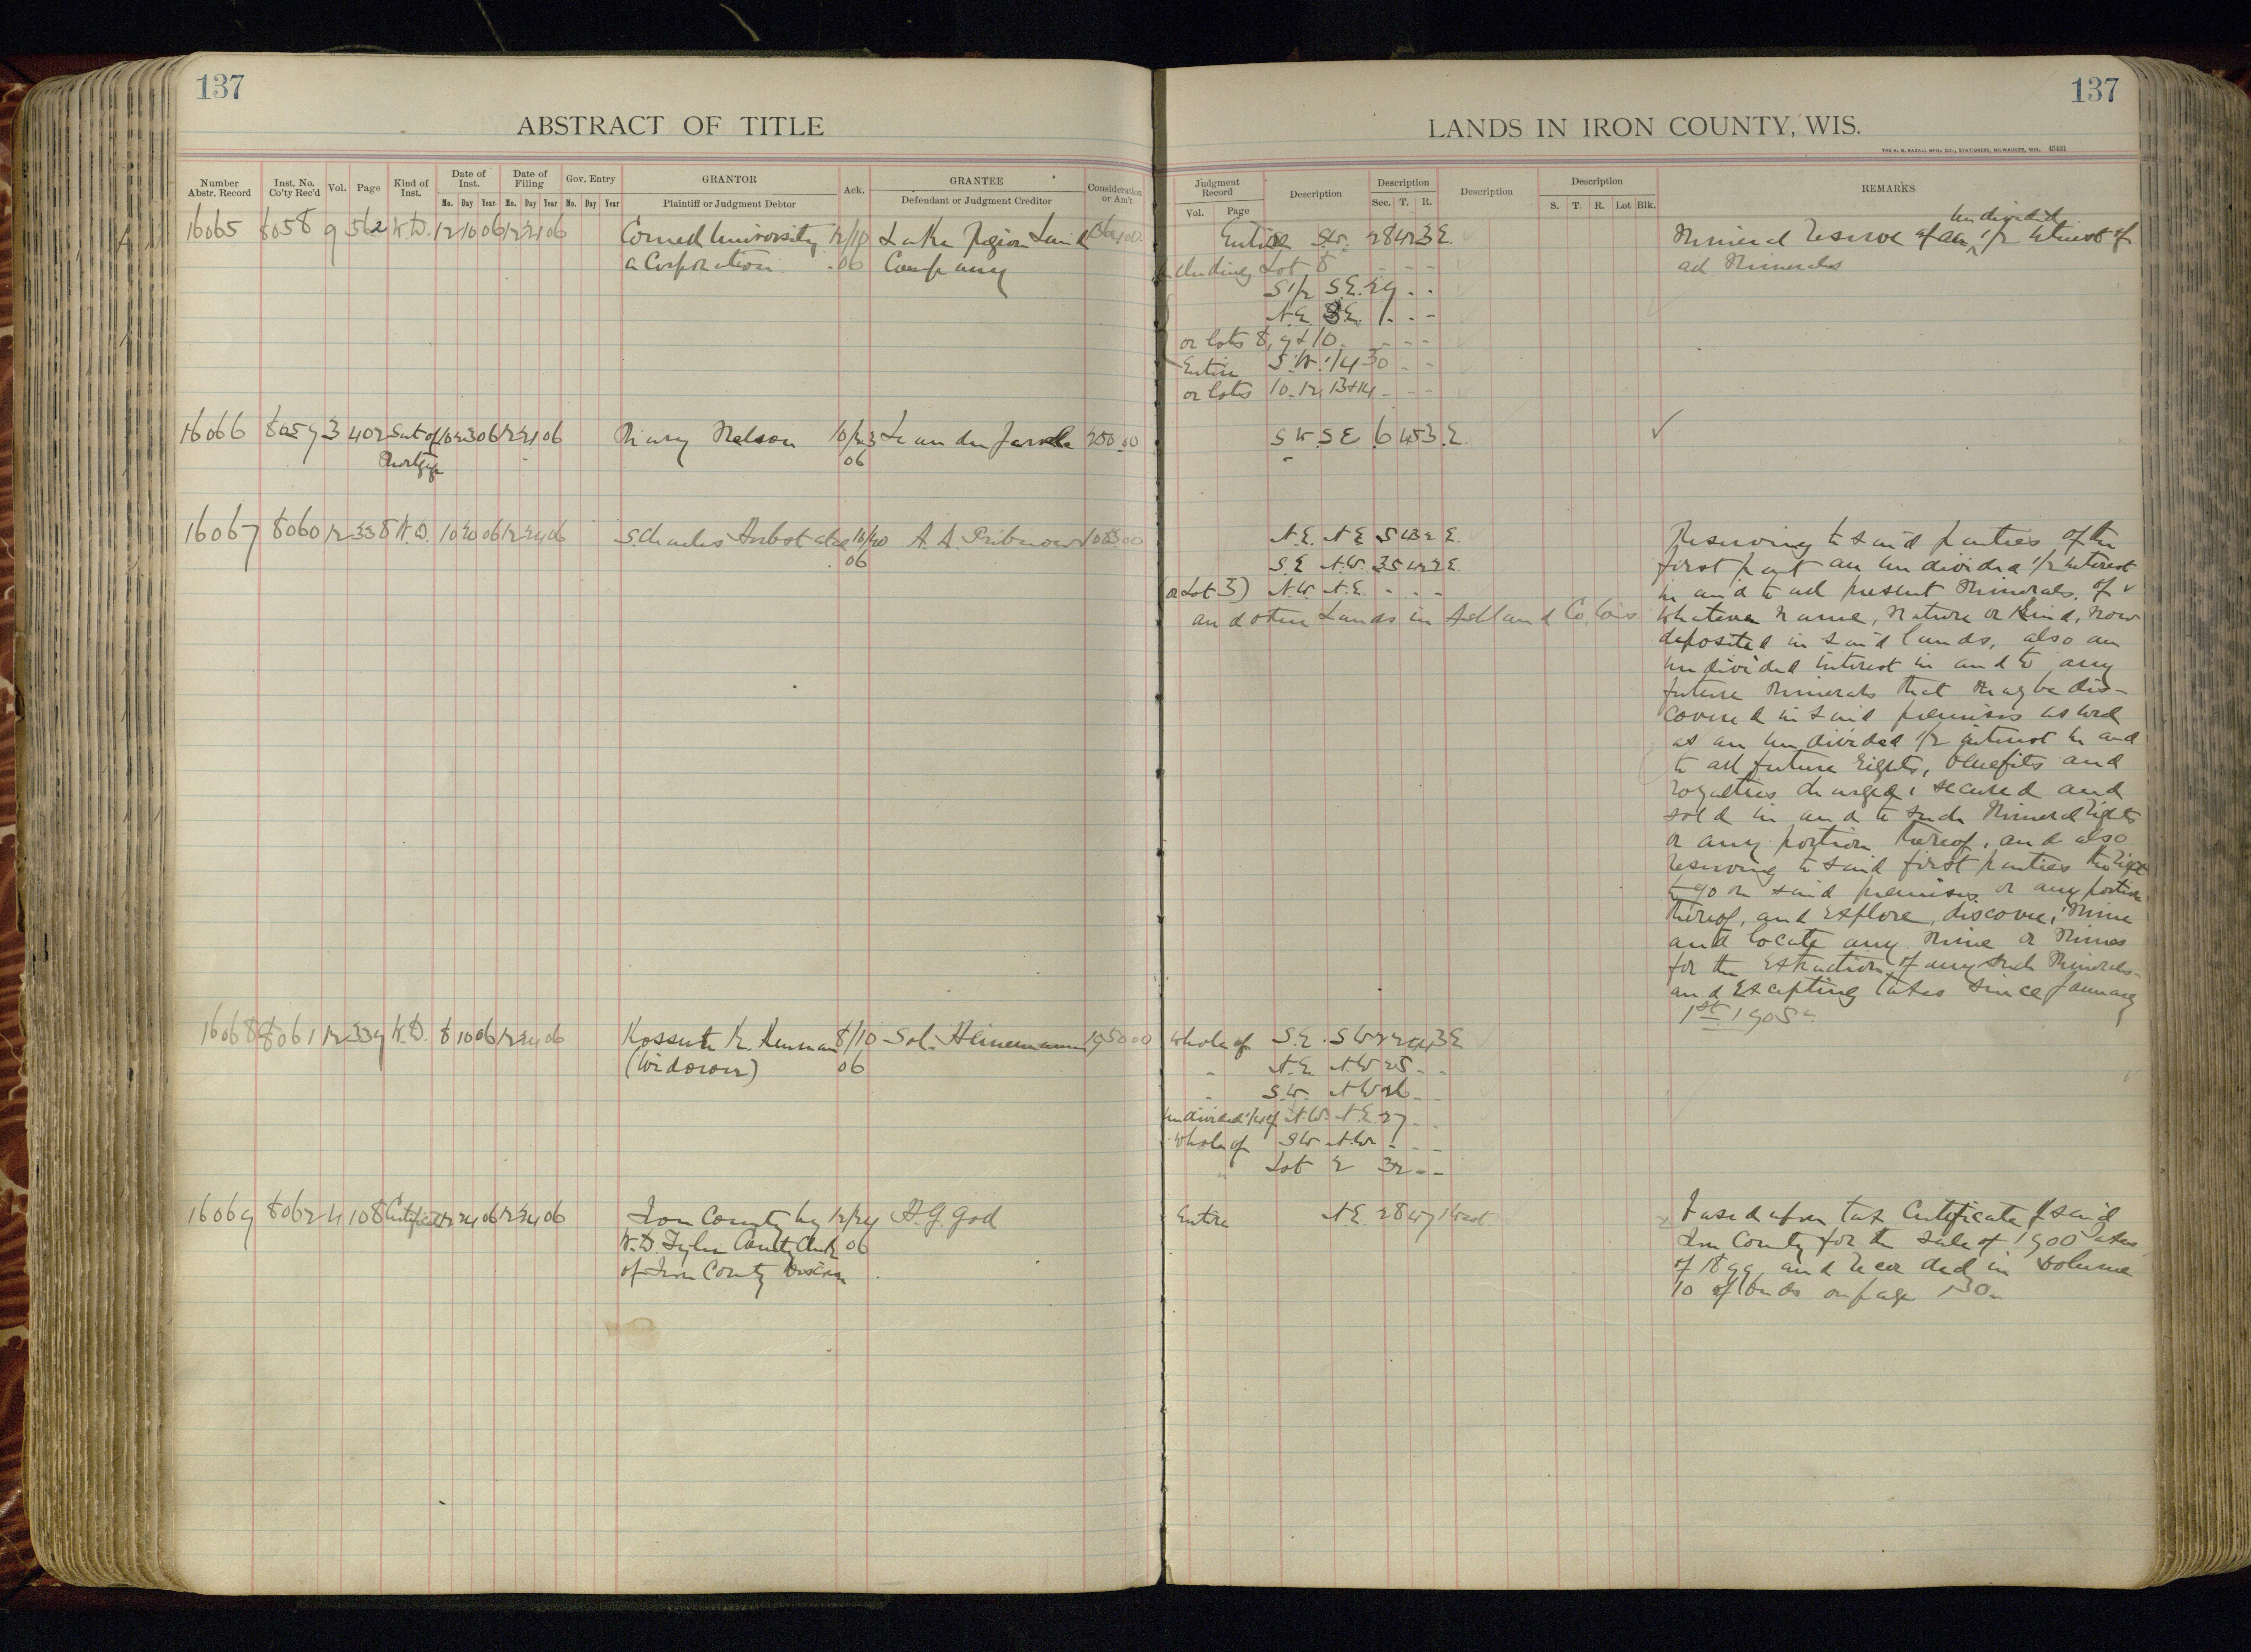 137
ABSTRACT OF TITLE
Number Abstr. Record
Inst. No. Co'ty Rec'd
Vol.
Page
Kind of Inst.
Date of Inst.
Mo. Day Year
Date of Filing
Mo. Day Year
Gov. Entry
Mo. Day Year
GRANTOR
Plaintiff or Judgment Debtor
Ack.
GRANTEE
Defendant or Judgment Creditor
Consideration or Am't
16065 8058 9 562 W.D. 12 10 06 12 24 06 Cornell University Lake Region Land
a Corporation 06 Company
16066 8059 3 402 Sat of 10 23 06 12 24 06 Mary Nelson 10/23 250.00
Mortgage 06
16067 8060 12 338 W.D. 10 20 06 12 24 06 10/20 A. A. Pribnow
06
16068 8061 12 339 W.D. 8 10 06 12 24 06 Kossuth K. Kennan 8/10 Sol. Heinemann 1950 00
(Widower) 06
16069 8062 4 108 Certificate 12 24 06 12 24 06 Iron County by 12/24
W.D. Tyler County Clerk 06
of Iron County Wisconsin
137
LANDS IN IRON COUNTY, WIS.
THE H. G. RAZALL MFG. CO., STATIONERS, MILWAUKEE, WIS. 45431
Judgment Record
Vol. Page
Description
Description
Sec. T. R.
Description
Description
S. T. R. Lot Blk.
REMARKS
undivided
Entire S.W. 28 42 3 E. Mineral reserve of an 1/2 interest of
including Lot 8 - - - all Minerals
S 1/2 S.E. 29 - -
N.E. S.E. - -
or lots 8, 9 & 10 - - -
Entire S.W. 1/4 30 - -
or lots 10. 12, 13 & 14 - - -
S W. S E 6 45 3. E. ✓
N.E. N E 5 2 E. Reserving to said parties of the
S.E N.W. 35 42 2 E. first part an undivided 1/2 interest
(or Lot 3) N.W. N.E. - - - in and to all present Minerals, of
and other Lands in Ashland Co. Wis whatever name, nature or kind, now
deposited in said lands, also an
undivided interest in and to any
future minerals that may be dis-
covered in said premises as well
as an undivided 1/2 interest in and
to all future rights, benefits and
royalties charged, secured and
sold in and to such Mineral rights
or any portion thereof, and also
reserving to said first parties the right
to go on said premises or any portion
thereof, and explore, discover, Mine
and locate any Mine or Mines
for the extraction of any such Minerals-
and excepting taxes since January
1st 1905.
Whole of S.E. S W 22 44 3 E
" N.E. N.W 25 - -
" S.W. N W 26 - -
undivided 1/4 of N.W. N.E. 27 - -
Whole of S W N.W. - - -
" Lot 2 32 - -
Entire N.E. 28 47 1 West Based upon tax Certificate of said
Iron County for the sale of 1900 taxes
of 1899 and recorded in volume
10 of deeds on page 130.